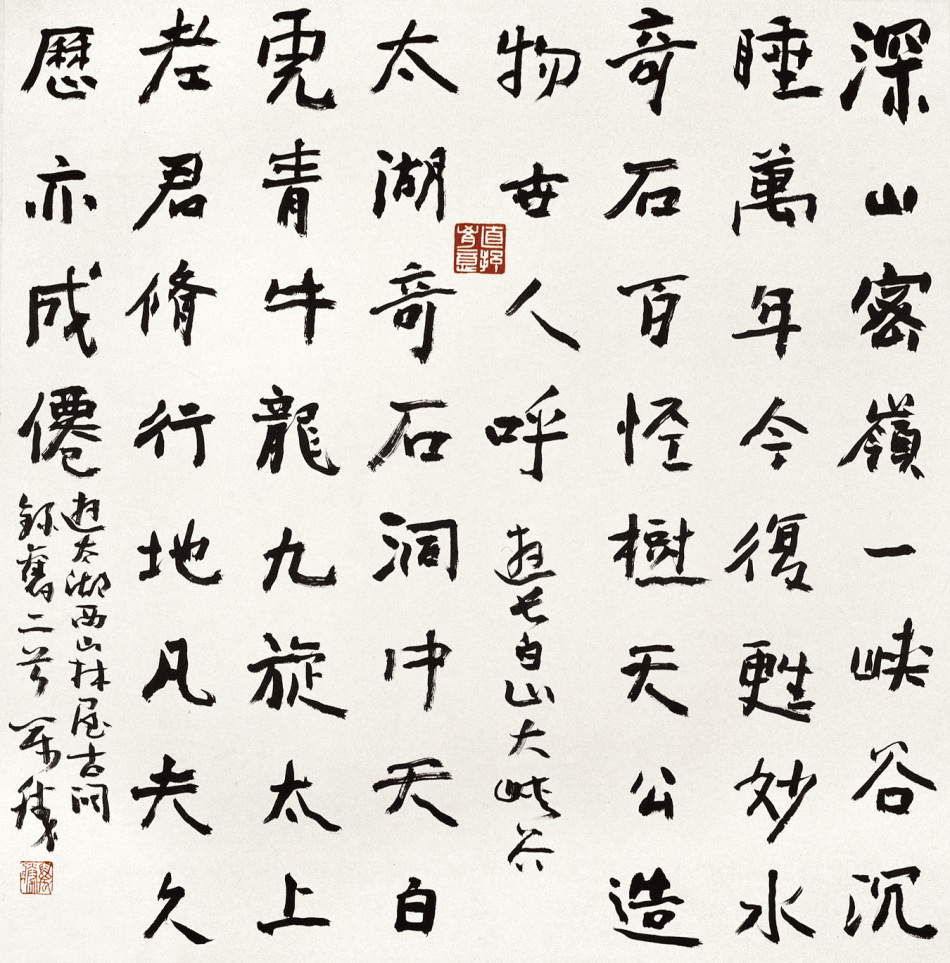 深山密嶺一峽谷沉
睡萬年今復甦妙水
奇石百怪樹天公造
物世人呼
遊长白山大峽谷
直抒胸臆
太湖奇石洞中天白
虎青牛龍九旋太上
老君脩行地凡夫久
歷亦成僊
遊太湖西山林屋古洞
錄舊二首